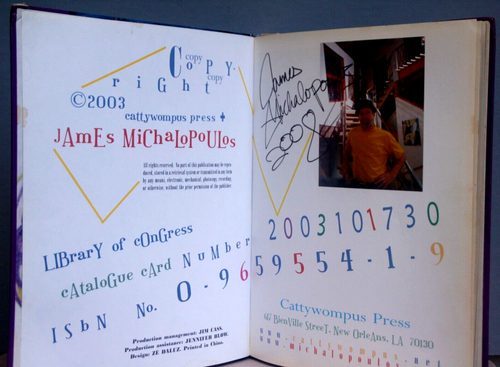 copy
CoPY-
right copy
©2003
cattywompus press +
JAmEs MiChaLoPoULos
All rights reserved. No part of this publication may be repro-
duced, stored in a retrieval system or transmitted in any form
by any means, electronic, mechanical, photocopy, recording
or otherwise without the prior permission of the publisher
LIBrarY of cOnGress
cAtaloGue cArd NuMber 2003101730
ISbN No. 0-9659554-1-9
Production management: JIM CASS.
Production assistance: JENNIFER BLOW.
Design: ZÉ DALUZ. Printed in China.
James
Michalopoulos
2004
Cattywompus Press
617 BienVille StreeT, New OrleAns, LA 70130
www.cattywompus.net
www.michalopoulos